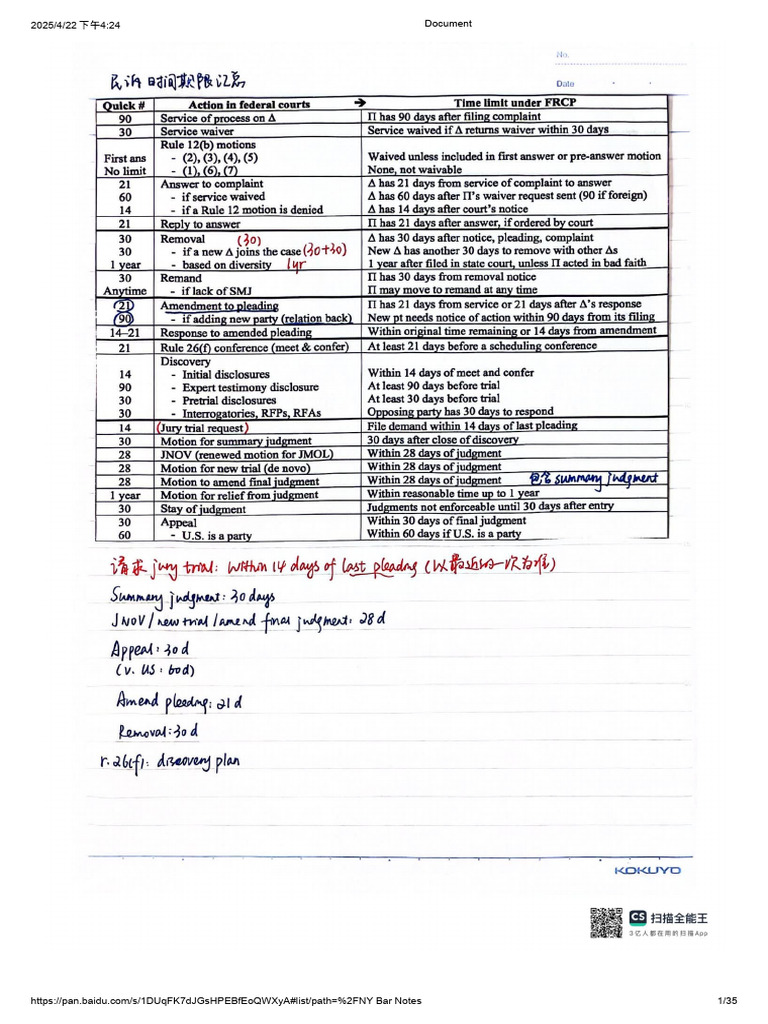 2025/4/22 下午4:24
Document
No.
Date
民诉时间期限汇总
Quick # Action in federal courts → Time limit under FRCP
90 Service of process on Δ Π has 90 days after filing complaint
30 Service waiver Service waived if Δ returns waiver within 30 days
Rule 12(b) motions
First ans - (2), (3), (4), (5) Waived unless included in first answer or pre-answer motion
No limit - (1), (6), (7) None, not waivable
21 Answer to complaint Δ has 21 days from service of complaint to answer
60 - if service waived Δ has 60 days after Π's waiver request sent (90 if foreign)
14 - if a Rule 12 motion is denied Δ has 14 days after court's notice
21 Reply to answer Π has 21 days after answer, if ordered by court
30 Removal (30) Δ has 30 days after notice, pleading, complaint
30 - if a new Δ joins the case (30+30) New Δ has another 30 days to remove with other Δs
1 year - based on diversity 1yr 1 year after filed in state court, unless Π acted in bad faith
30 Remand Π has 30 days from removal notice
Anytime - if lack of SMJ Π may move to remand at any time
21 Amendment to pleading Π has 21 days from service or 21 days after Δ's response
90 - if adding new party (relation back) New pt needs notice of action within 90 days from its filing
14–21 Response to amended pleading Within original time remaining or 14 days from amendment
21 Rule 26(f) conference (meet & confer) At least 21 days before a scheduling conference
Discovery
14 - Initial disclosures Within 14 days of meet and confer
90 - Expert testimony disclosure At least 90 days before trial
30 - Pretrial disclosures At least 30 days before trial
30 - Interrogatories, RFPs, RFAs Opposing party has 30 days to respond
14 (Jury trial request) File demand within 14 days of last pleading
30 Motion for summary judgment 30 days after close of discovery
28 JNOV (renewed motion for JMOL) Within 28 days of judgment
28 Motion for new trial (de novo) Within 28 days of judgment
28 Motion to amend final judgment Within 28 days of judgment 包含 summary judgment
1 year Motion for relief from judgment Within reasonable time up to 1 year
30 Stay of judgment Judgments not enforceable until 30 days after entry
30 Appeal Within 30 days of final judgment
60 - U.S. is a party Within 60 days if U.S. is a party
请求 jury trial: within 14 days of last pleading (以最近的一次为准)
Summary judgment: 30 days
JNOV/new trial/amend final judgment: 28 d
Appeal: 30 d
(v. US: 60d)
Amend pleading: 21 d
Removal: 30 d
r. 26(f): discovery plan
KOKUYO
CS 扫描全能王
3亿人都在用的扫描App
https://pan.baidu.com/s/1DUqFK7dJGsHPEBfEoQWXyA#list/path=%2FNY Bar Notes
1/35